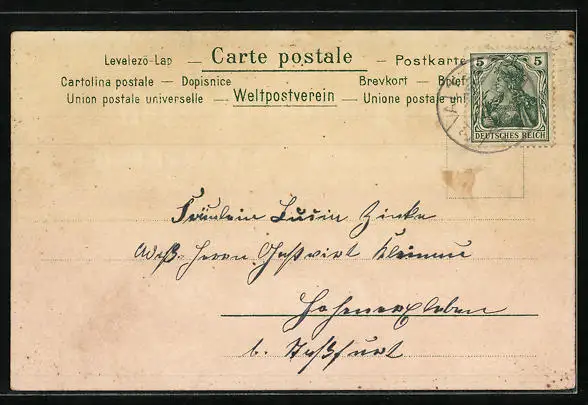 Levelező-Lap — Carte postale — Postkarte
Cartolina postale — Dopisnice Brevkort — Brief
Union postale universelle — Weltpostverein — Unione postale uni
5 5
DEUTSCHES REICH
Fräulein Zinke
Adß. Herrn Gastwirt
Hohenerxleben
b. Staßfurt